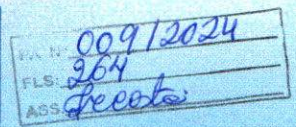 P.A. Nº 009/2024
FLS: 264
ASS